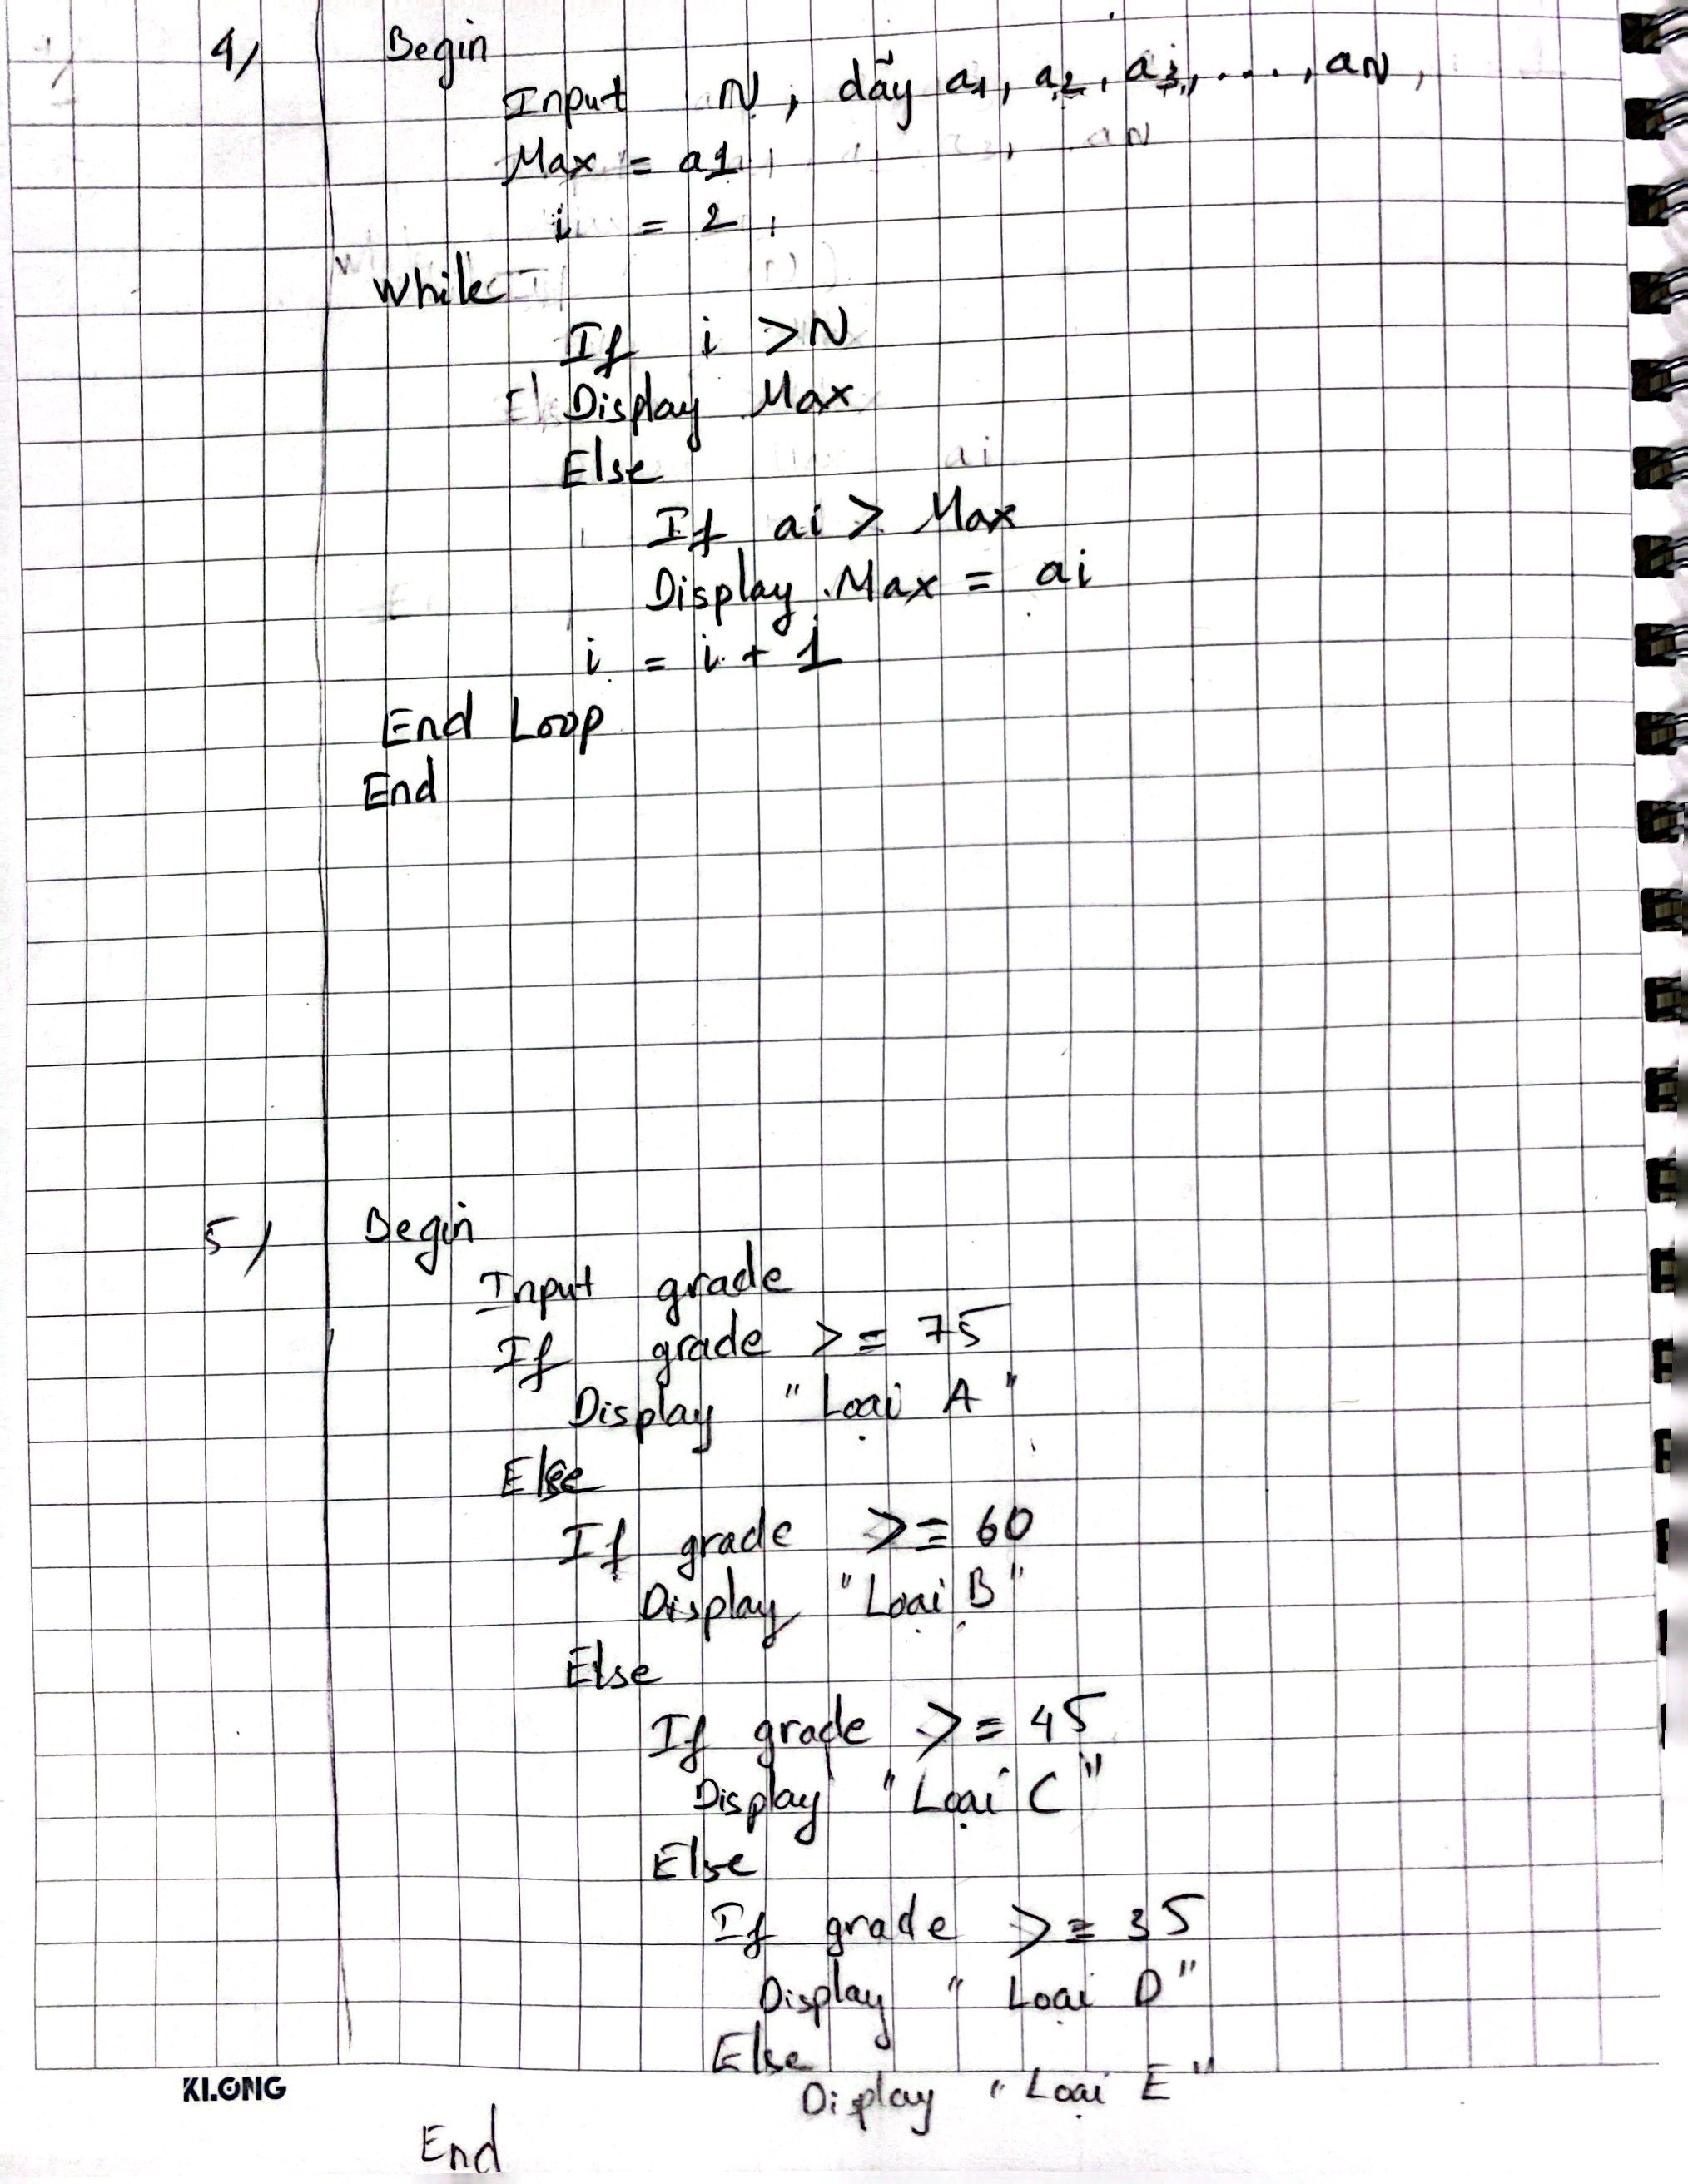 4/ Begin
Input N, dãy a1, a2, a3, ...., aN,
Max = a1,
i = 2,
While
If i > N
Display Max
Else
If ai > Max
Display Max = ai
i = i + 1
End Loop
End
5/ Begin
Input grade
If grade >= 75
Display "Loại A"
Else
If grade >= 60
Display "Loại B"
Else
If grade >= 45
Display "Loại C"
Else
If grade >= 35
Display "Loại D"
Else
Display "Loại E"
KLONG
End